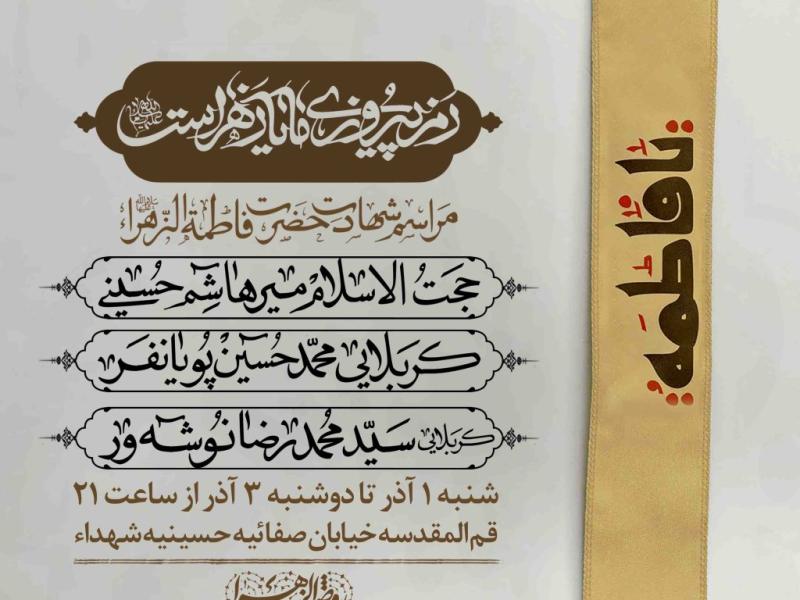 رمز پیروزی ما نام زهراست
مراسم شهادت حضرت فاطمة الزهراء
حجت الاسلام میرهاشم حسینی
کربلایی محمد حسین پویانفر
کربلایی سید محمدرضا نوشه ور
شنبه ۱ آذر تا دوشنبه ۳ آذر از ساعت ۲۱
قم المقدسه خیابان صفائیه حسینیه شهداء
یا فاطمه